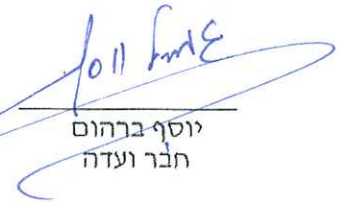 יוסף ברהום
חבר ועדה